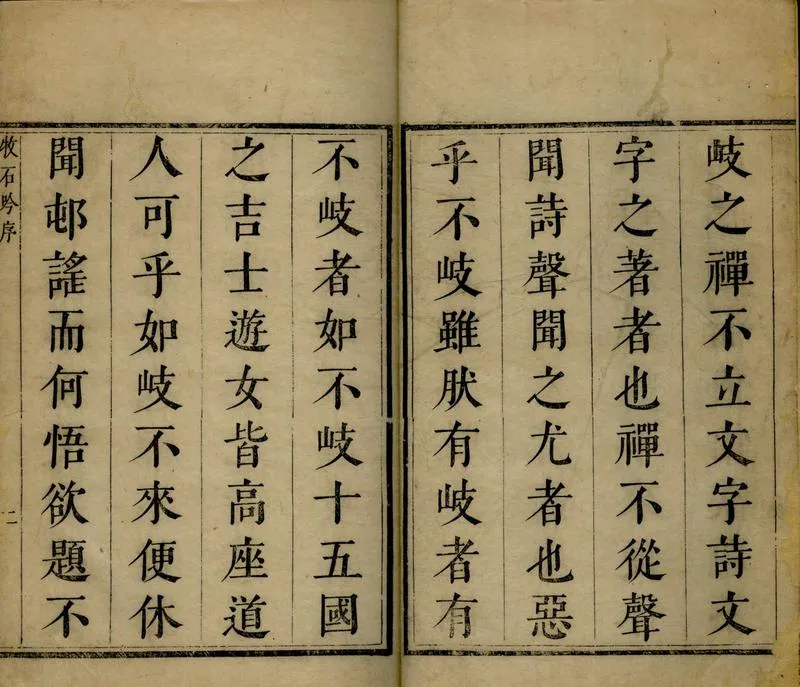 岐之禪不立文字詩文
字之著者也禪不從聲
聞詩聲聞之尤者也惡
乎不岐雖肰有岐者有
不岐者如不岐十五國
之吉士遊女皆高座道
人可乎如岐不來便休
聞邨謠而何悟欲題不
牧石吟序
二